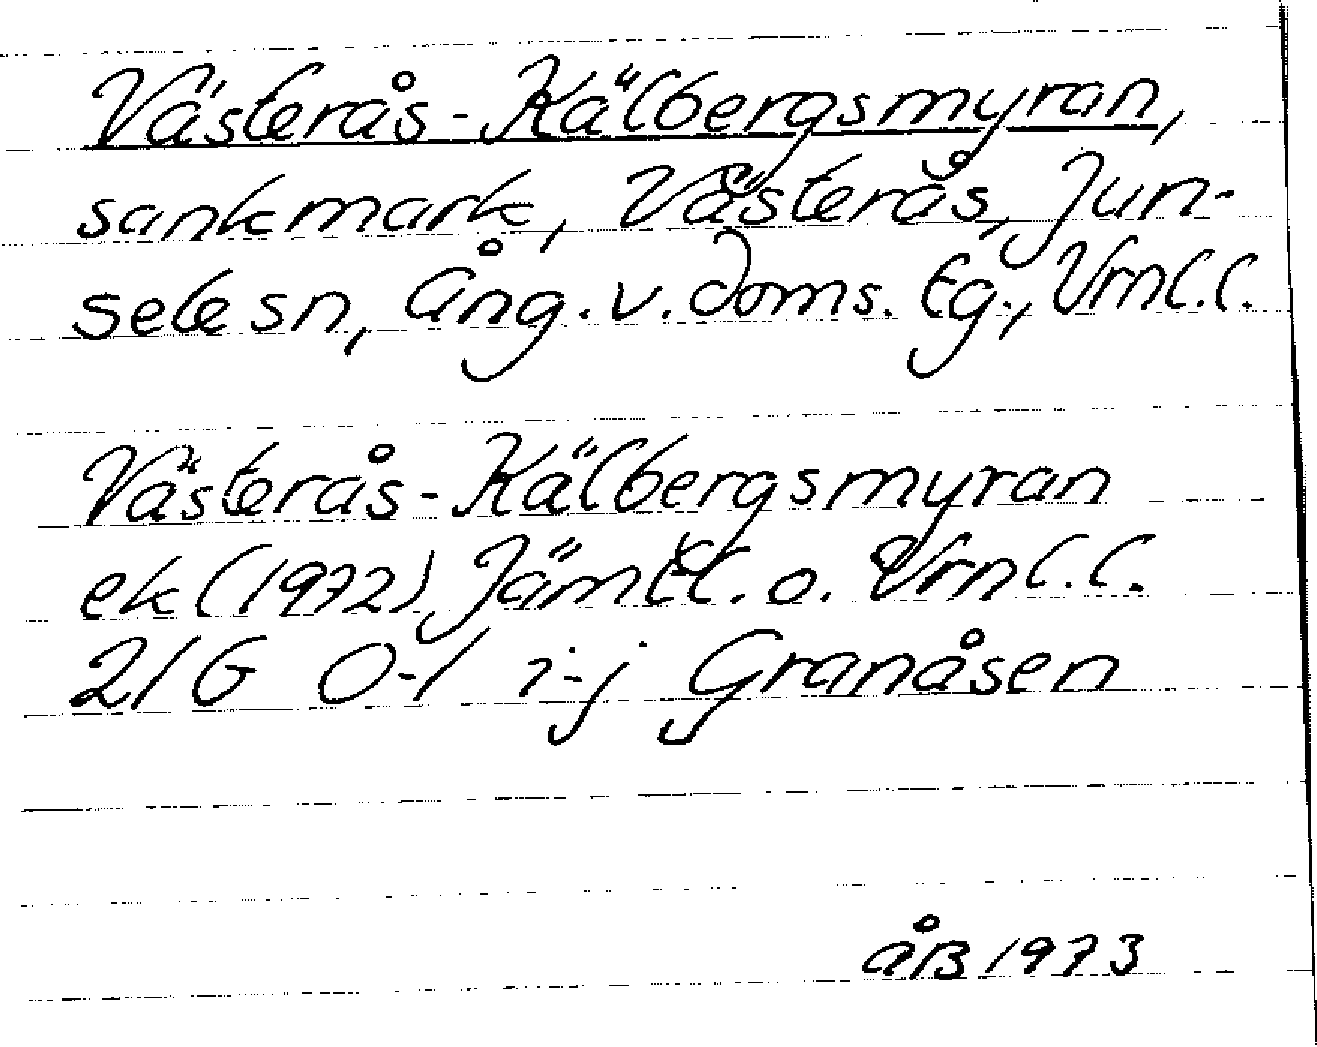 Västerås-Kälbergsmyran,
sankmark, Västerås, Jun-
sele sn, Ång. v. doms. tg., Vrnl.l.
Västerås-Kälbergsmyran
ek (1972) Jämtl. o. Vrnl.l.
21G 0-1 i-j Granåsen
åB 1973